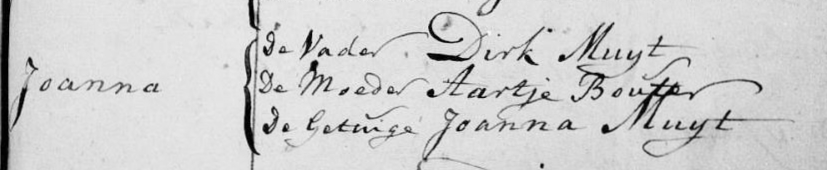 De Vader Dirk Muyt
Joanna De Moeder Aartje Bouter
De Getuige Joanna Muyt